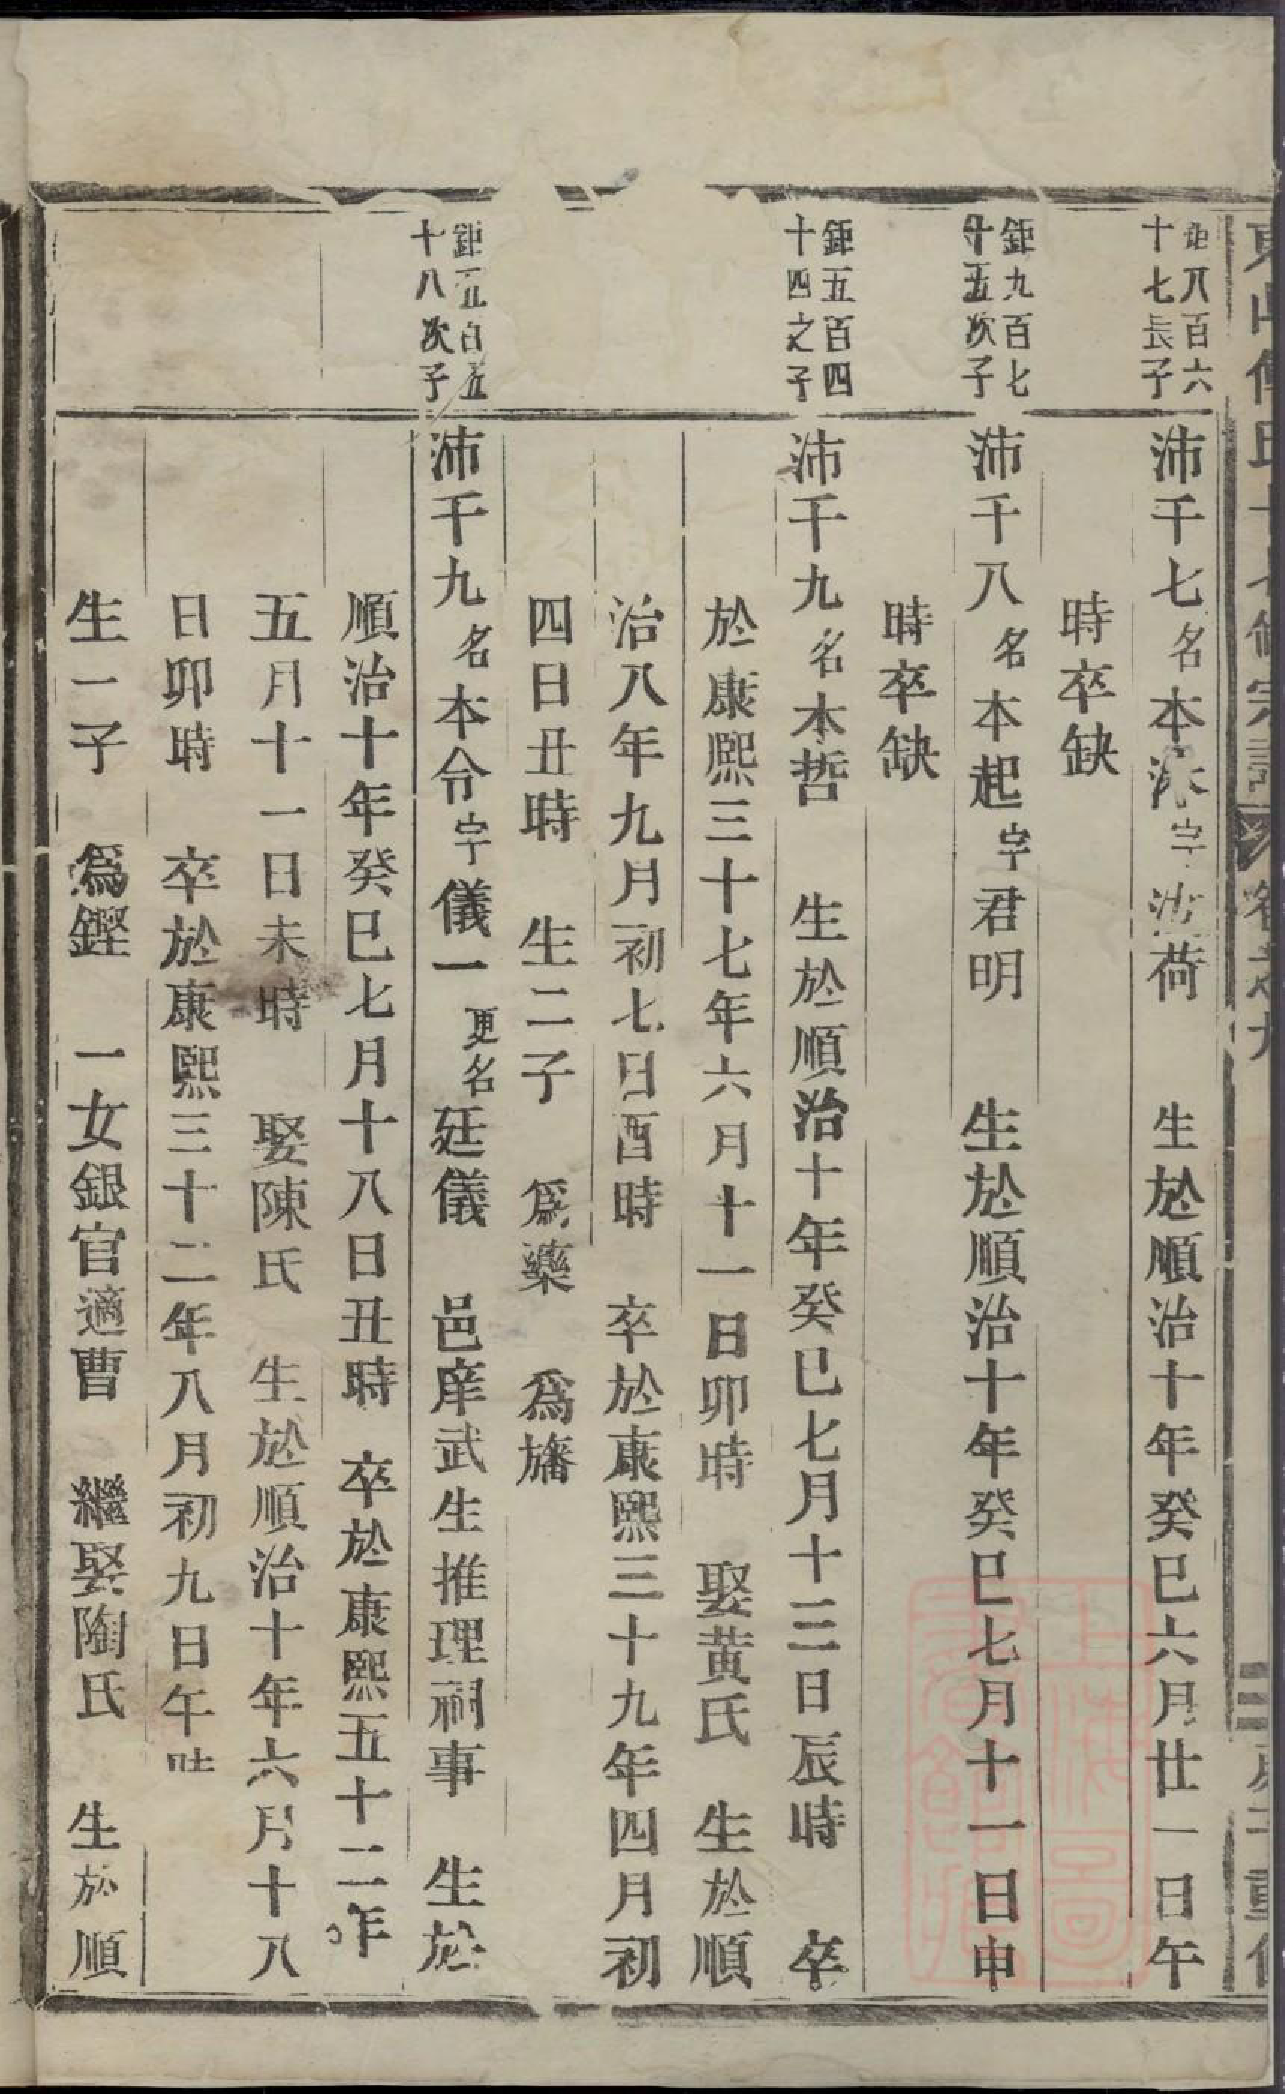 鉅八百六
十七長子
沛千七名本 字 荷 生於順治十年癸巳六月廿一日午
時卒缺
鉅九百七
十五次子
沛千八名本起字君明 生於順治十年癸巳七月十一日申
時卒缺
鉅五百四
十四之子
沛千九名本哲 生於順治十年癸巳七月十三日辰時 卒
於康熙三十七年六月十一日卯時 娶黃氏 生於順
治八年九月初七日酉時 卒於康熙三十九年四月初
四日丑時 生二子 爲藥 爲旛
鉅五百五
十八次子
沛千九名本令字儀一更名廷儀 邑庠武生推理祠事 生於
順治十年癸巳七月十八日丑時 卒於康熙五十二年
五月十一日未時 娶陳氏 生於順治十年六月十八
日卯時 卒於康熙三十二年八月初九日午時
生一子 爲鏗 一女銀官適曹 繼娶陶氏 生於順